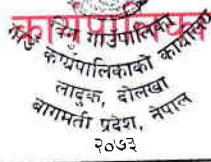 कार्यपालिका
गाउँ कार्यपालिकाको कार्यालय
लादुक, दोलखा
बागमती प्रदेश, नेपाल
२०७३